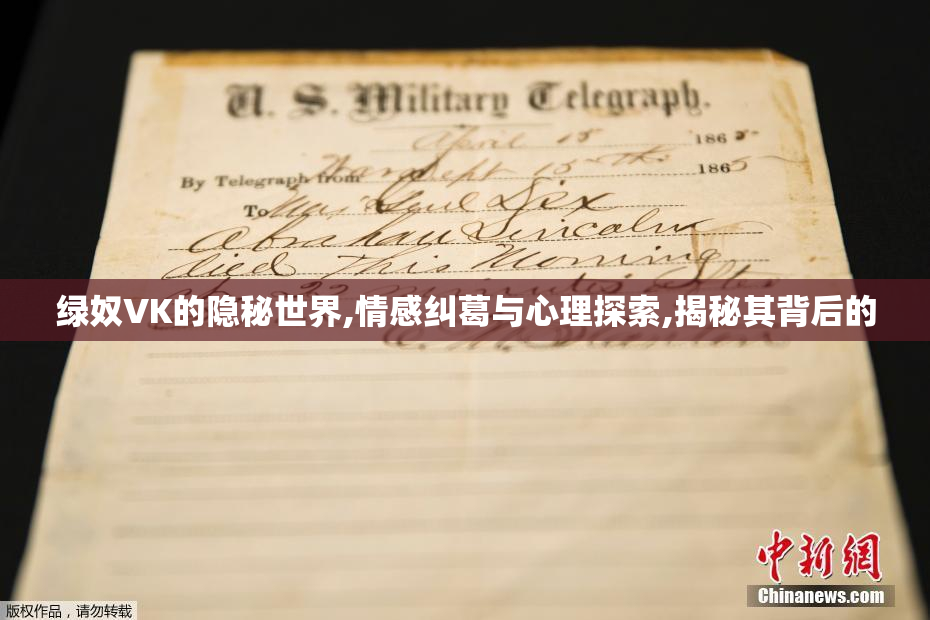 U. S. Military Telegraph.
April 15 1865
By Telegraph from War Dept 15th 1865
To Maj Genl Dix
Abraham Lincoln
died This Morning
22 minutes after
绿奴VK的隐秘世界,情感纠葛与心理探索,揭秘其背后的
中新网
Chinanews.com
版权作品，请勿转载